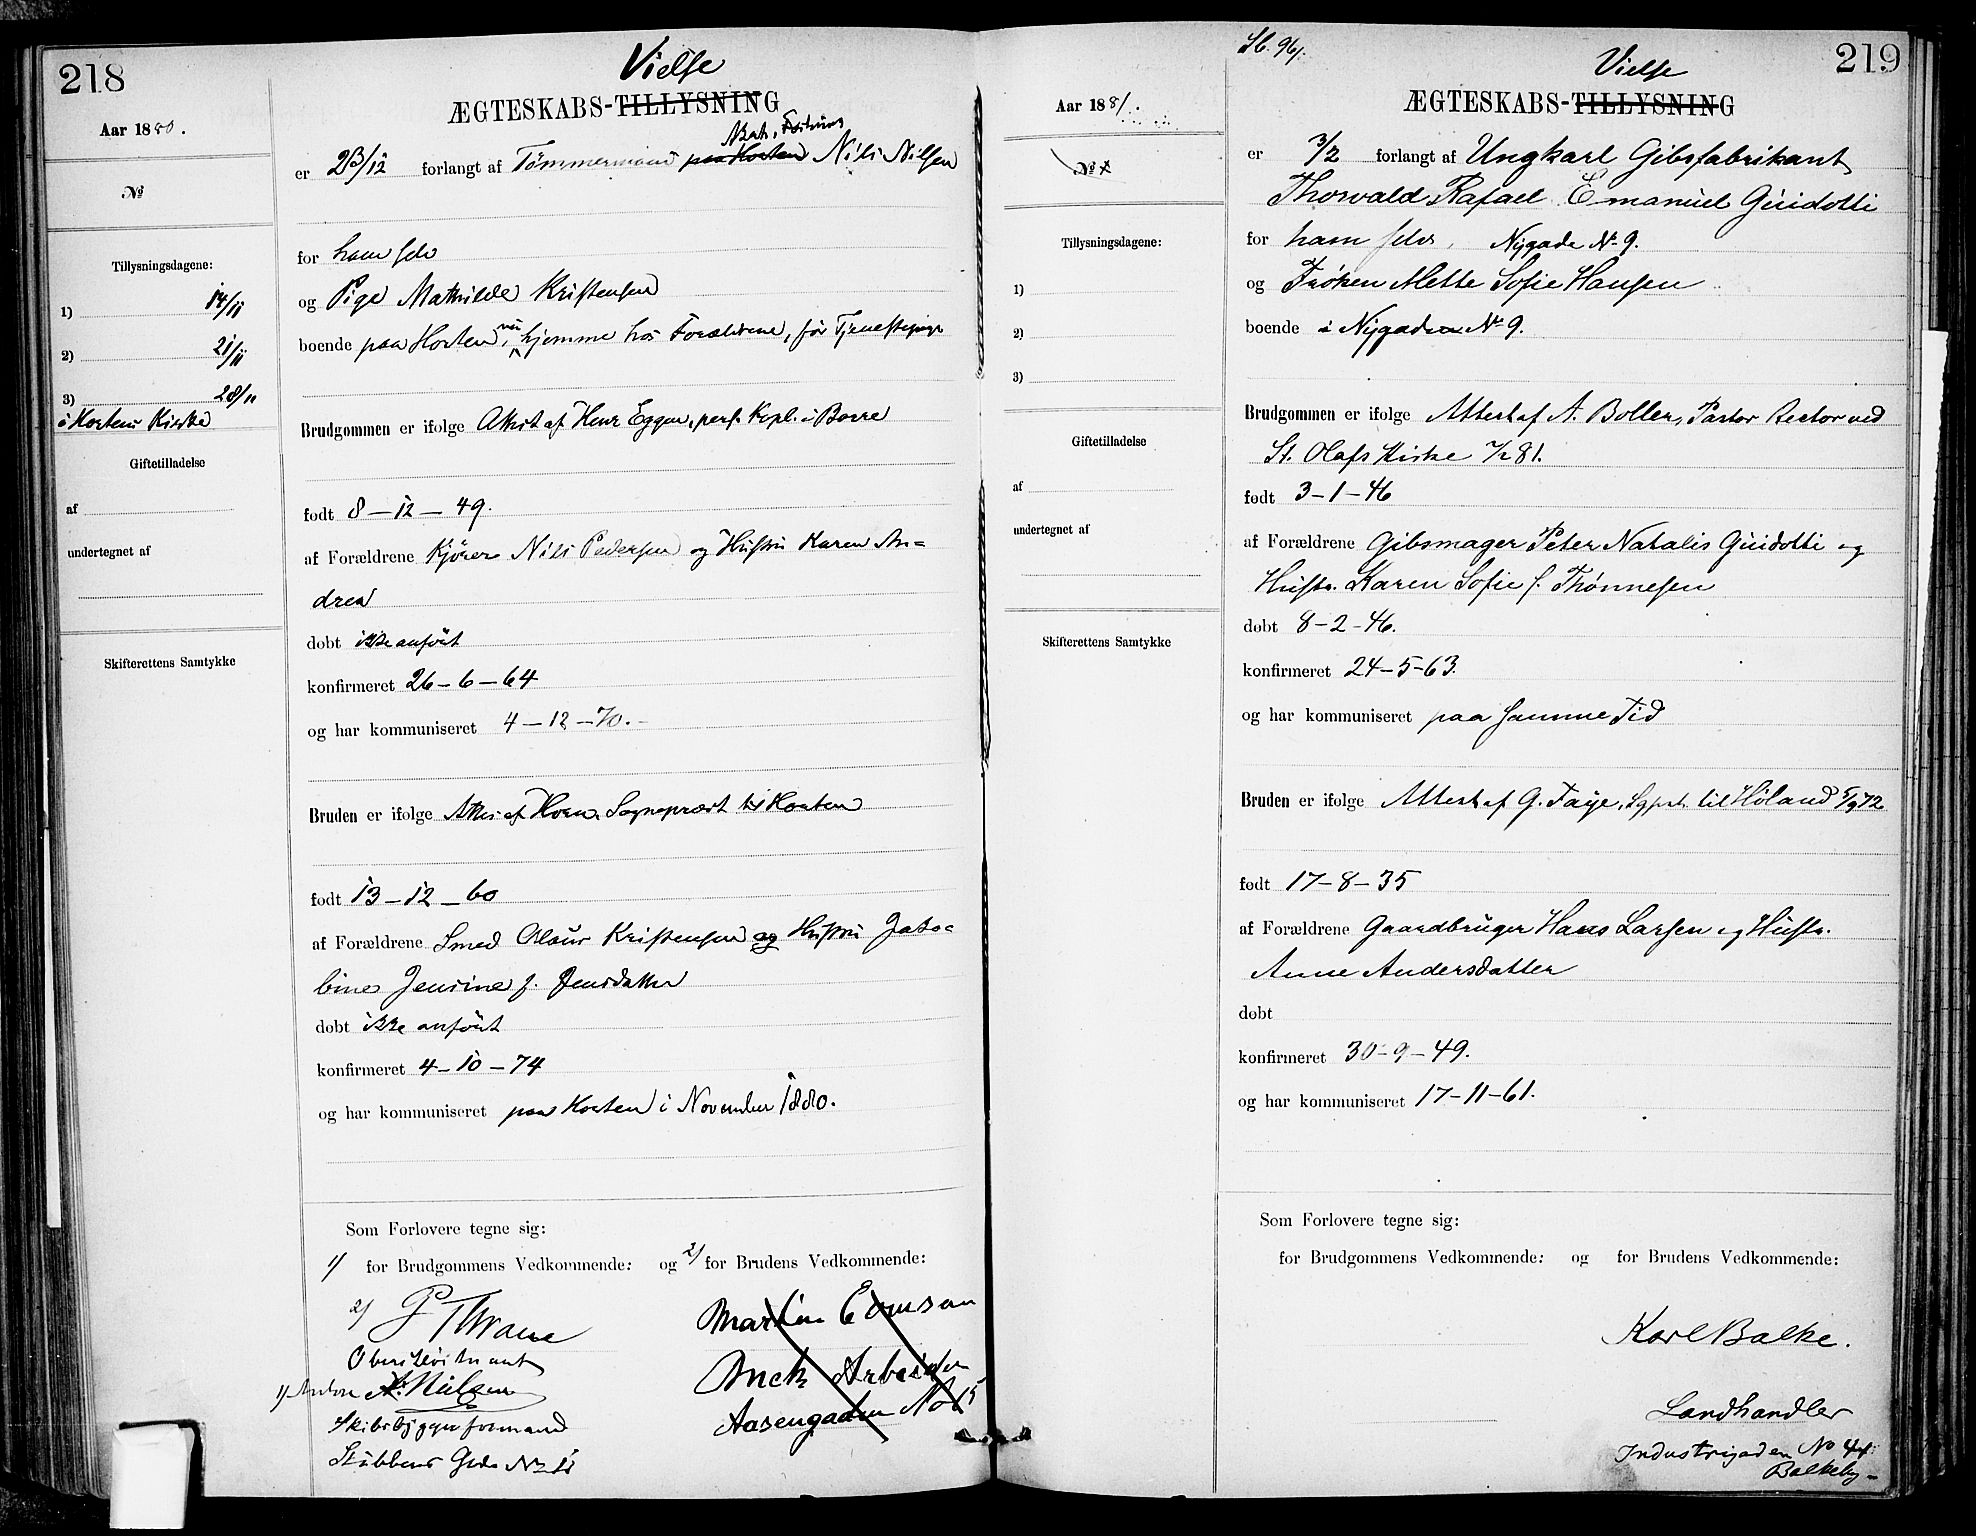 218
Vielse
ÆGTESKABS-TILLYSNING
Aar 1880.
№
er 23/12 forlangt af Tömmermand paa Horten Nils Nilsen
for ham selv
og Pige Mathilde Kristensen
boende paa Horten, nu hjemme hos Forældrene, før Tjenestepige
Tillysningsdagene:
1) 14/11
2) 21/11
3) 28/11
i Hortens Kirke
Giftetilladelse
af
undertegnet af
Skifterettens Samtykke
Brudgommen er ifolge Attest af Henr Egger, pers. Kpl. i Borre
født 8 – 12 – 49.
af Forældrene Kjører Nils Pedersen og Hustru Karen An=
drea
døbt ikke anført
konfirmeret 26 – 6 – 64
og har kommuniseret 4 – 12 – 70. –
Bruden er ifolge Attest af Horn, Sogneprest til Horten
født 13 – 12 – 60
af Forældrene Smed Olaus Kristensen og Hustru Jako=
bine Jensine f. Jensdatter
døbt ikke anført
konfirmeret 4 – 10 – 74
og har kommuniseret paa Horten i November 1880.
Som Forlovere tegne sig:
1/ for Brudgommens Vedkommende: og 2/ for Brudens Vedkommende:
2/ P Thrane
Oberstløitnant
1/ Anton A. Nielsen
Skibsbyggerformand
Stubbens Gade No
Martin
Arbeider
Aasengaden No 15
Sb. 96/.
219
Vielse
ÆGTESKABS-TILLYSNING
Aar 1881.
№
er 3/2 forlangt af Ungkarl Gibsfabrikant
Thorvald Rafael Emanuel Guidotti
for ham selv, Nygade No 9.
og Frøken Mette Sofie Hansen
boende i Nygaden No 9.
Tillysningsdagene:
1)
2)
3)
Giftetilladelse
af
undertegnet af
Skifterettens Samtykke
Brudgommen er ifolge Attest af A. Boller, Pastor Rector ved
St. Olafs Kirke 2/2 81.
født 3 – 1 – 46
af Forældrene Gibsmager Peter Natalis Guidotti og
Hustr. Karen Sofie f. Thønnesen
døbt 8 – 2 – 46.
konfirmeret 24 – 5 – 63.
og har kommuniseret paa samme Tid
Bruden er ifolge Attest af G. Faye, Sgprst. til Høland 5/9 72
født 17 – 8 – 35
af Forældrene Gaardbruger Hans Larsen og Hustr.
Anne Andersdatter
døbt
konfirmeret 30 – 9 – 49.
og har kommuniseret 17 – 11 – 61.
Som Forlovere tegne sig:
for Brudgommens Vedkommende: og for Brudens Vedkommende:
Karl Balke.
Landhandler
Industrigaden No 44
Balkeby –